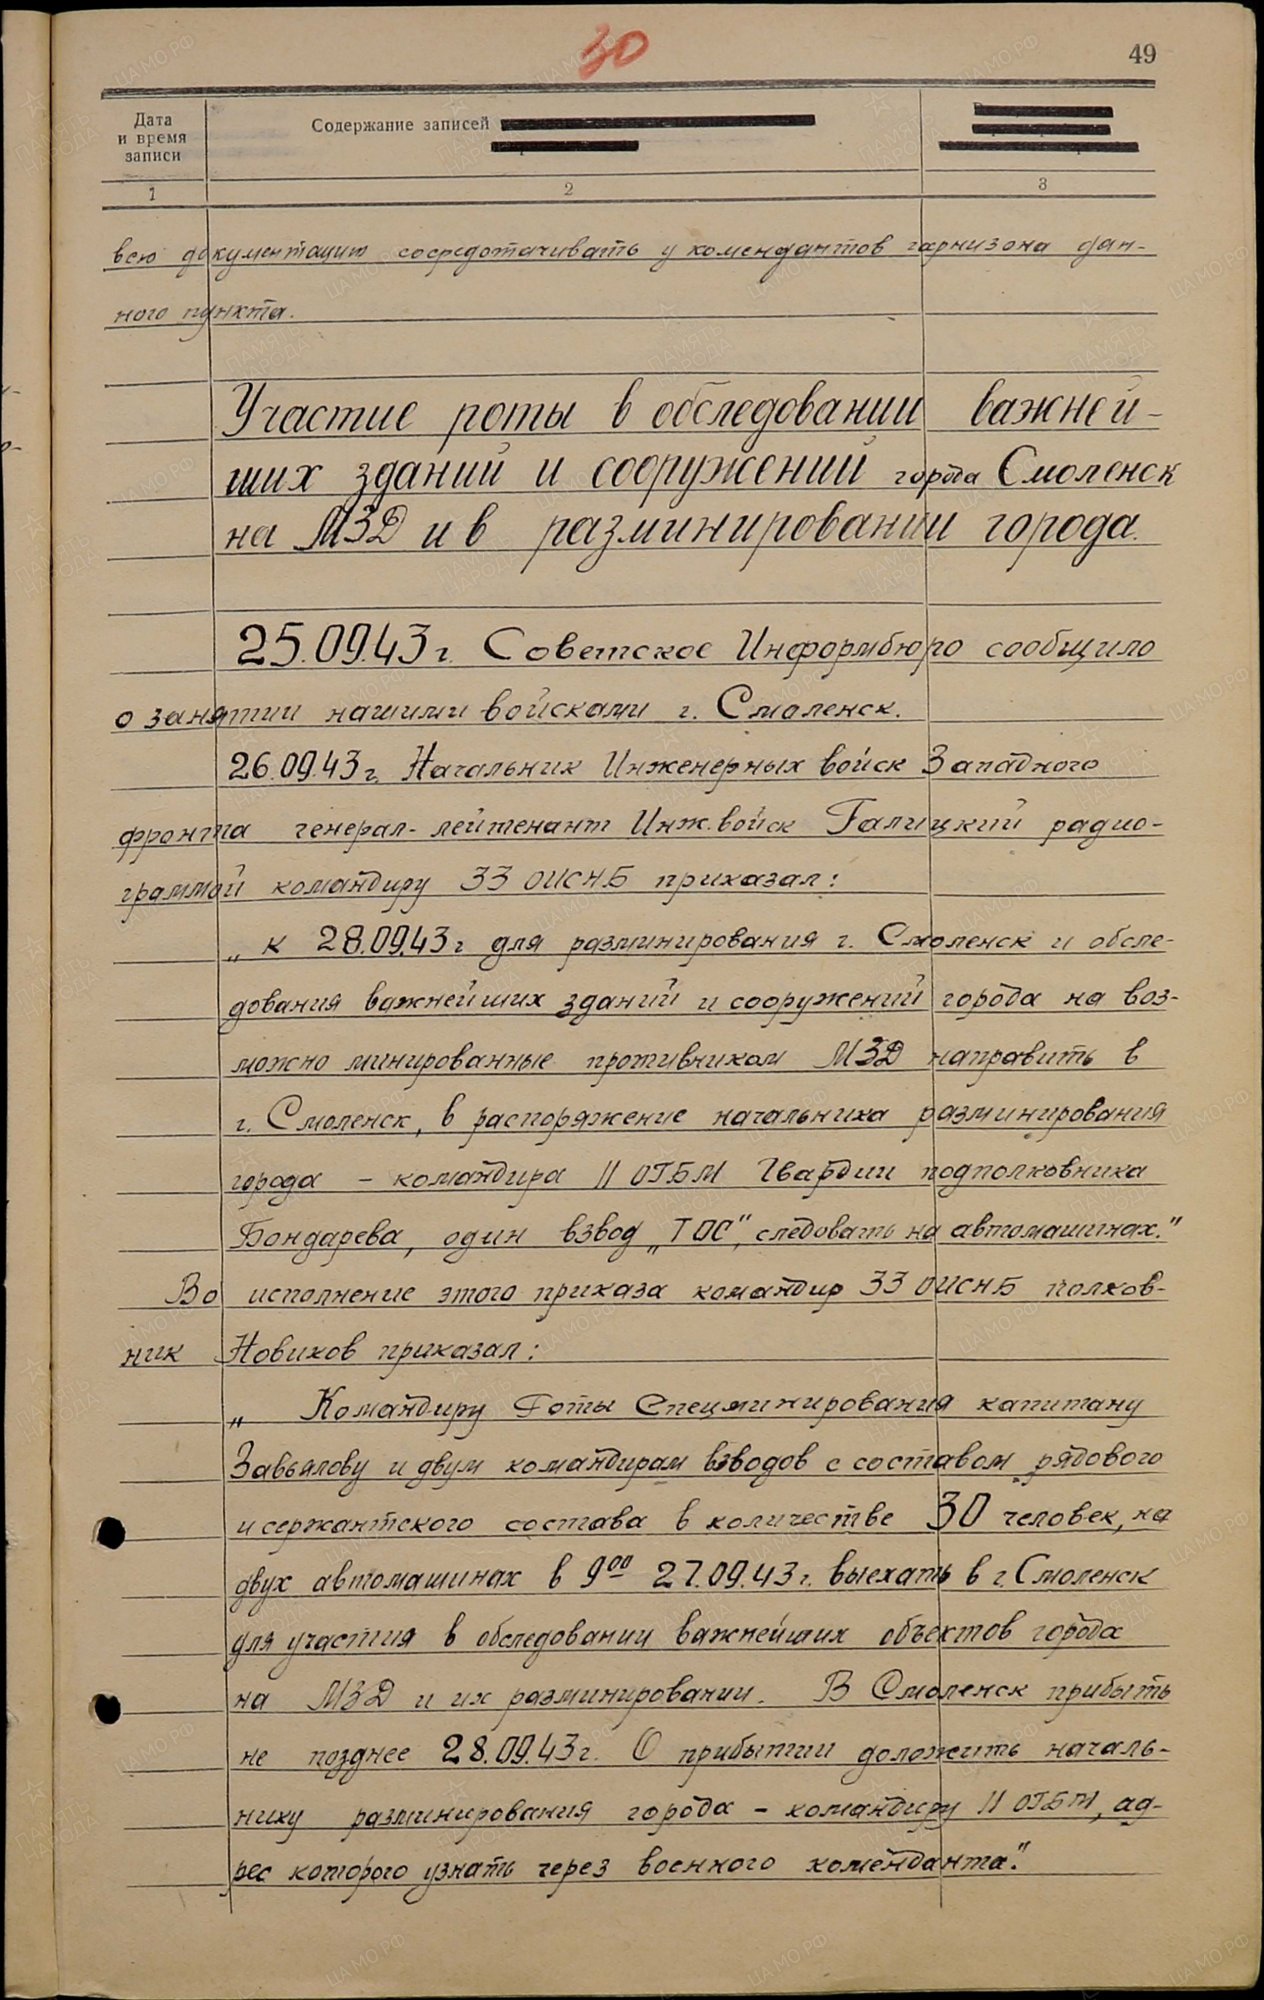 30
49
Дата
и время
записи
Содержание записей
1
2
3
всю документацию сосредотачивать у комендантов гарнизона дан-
ного пункта.
Участие роты в обследовании важней-
ших зданий и сооружений города Смоленск
на МЗД и в разминировании города.
25.09.43 г. Советское Информбюро сообщило
о занятии нашими войсками г. Смоленск.
26.09.43 г. Начальник Инженерных войск Западного
фронта генерал-лейтенант Инж.войск Галицкий радио-
граммой командиру 33 ОИСНБ приказал:
„к 28.09.43 г для разминирования г. Смоленск и обсле-
дования важнейших зданий и сооружений города на воз-
можно минированные противником МЗД направить в
г. Смоленск, в распоряжение начальника разминирования
города – командира 11 ОГБМ Гвардии подполковника
Бондарева, один взвод „ТОС“, следовать на автомашинах.“
Во исполнение этого приказа командир 33 ОИСНБ полков-
ник Новиков приказал:
„ Командиру Роты Спецминирования капитану
Завьялову и двум командирам взводов с составом рядового
и сержантского состава в количестве 30 человек, на
двух автомашинах в 9⁰⁰ 27.09.43 г. выехать в г. Смоленск
для участия в обследовании важнейших объектов города
на МЗД и их разминировании. В Смоленск прибыть
не позднее 28.09.43 г. О прибытии доложить началь-
нику разминирования города – командиру 11 ОГБМ, ад-
рес которого узнать через военного коменданта.“